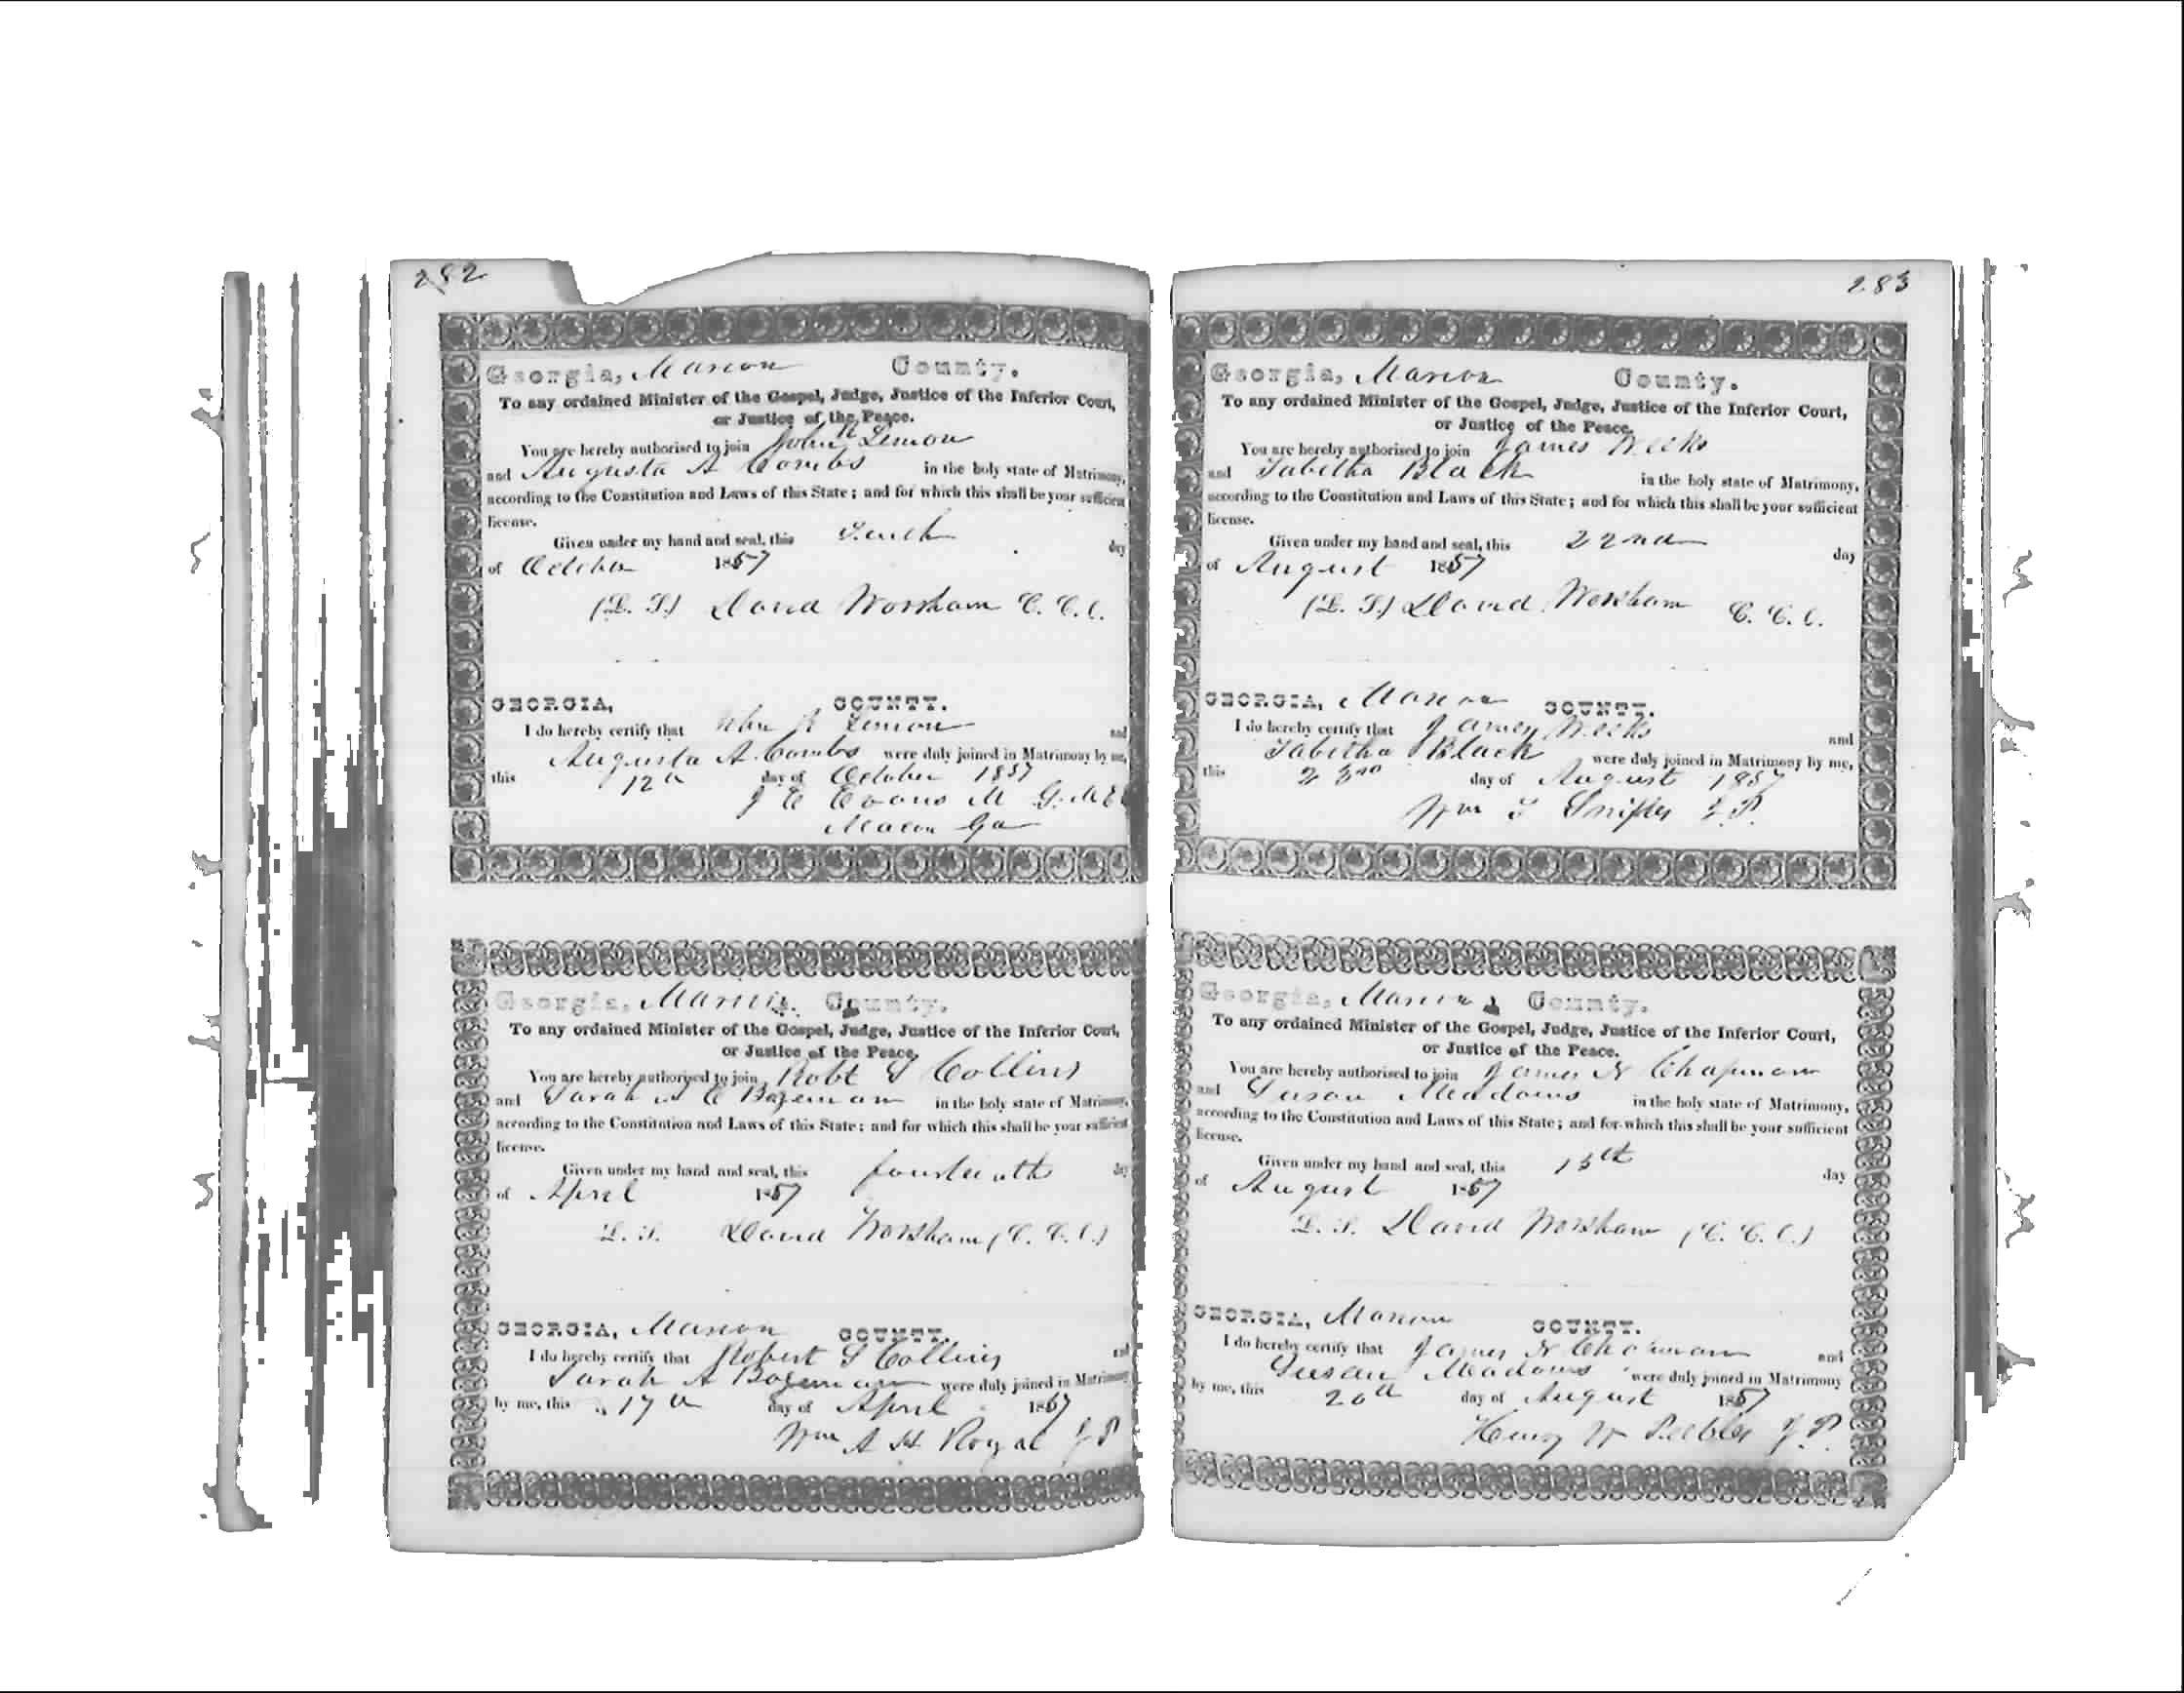 282
Georgia, Marion County.
To any ordained Minister of the Gospel, Judge, Justice of the Inferior Court,
or Justice of the Peace.
You are hereby authorised to join John R Lemon
and Augusta A Combs in the holy state of Matrimony,
according to the Constitution and Laws of this State; and for which this shall be your sufficient
license.
Given under my hand and seal, this Tenth day
of October 1857
(L. S.) David Worsham C. C. O.
GEORGIA, COUNTY.
I do hereby certify that John R Lemon and
Augusta A. Combs were duly joined in Matrimony by me,
this 12th day of October 1857
J E Evans M G. M E
Macon Ga
Georgia, Marion County.
To any ordained Minister of the Gospel, Judge, Justice of the Inferior Court,
or Justice of the Peace.
You are hereby authorised to join Robt S Collins
and Sarah A Bozeman in the holy state of Matrimony,
according to the Constitution and Laws of this State; and for which this shall be your sufficient
license.
Given under my hand and seal, this fourteenth day
of April 1857
L. S. David Worsham (C. C. O.)
GEORGIA, Marion COUNTY.
I do hereby certify that Robert S Collins and
Sarah A Bozeman were duly joined in Matrimony
by me, this 17th day of April 1857
Wm A H Royal J P
283
Georgia, Marion County.
To any ordained Minister of the Gospel, Judge, Justice of the Inferior Court,
or Justice of the Peace.
You are hereby authorised to join James Weeks
and Tabitha Black in the holy state of Matrimony,
according to the Constitution and Laws of this State; and for which this shall be your sufficient
license.
Given under my hand and seal, this 22nd day
of August 1857
(L. S.) David Worsham C. C. O.
GEORGIA, Marion COUNTY.
I do hereby certify that James Weeks and
Tabitha Black were duly joined in Matrimony by me,
this 23rd day of August 1857
Wm T Snipes J. P.
Georgia, Marion County.
To any ordained Minister of the Gospel, Judge, Justice of the Inferior Court,
or Justice of the Peace.
You are hereby authorised to join James N Chapman
and Susan Meadows in the holy state of Matrimony,
according to the Constitution and Laws of this State; and for which this shall be your sufficient
license.
Given under my hand and seal, this 15th day
of August 1857
L. S. David Worsham (C. C. O.)
GEORGIA, Marion COUNTY.
I do hereby certify that James N Chapman and
Susan Meadows were duly joined in Matrimony
by me, this 20th day of August 1857
Henry W Peebles J. P.